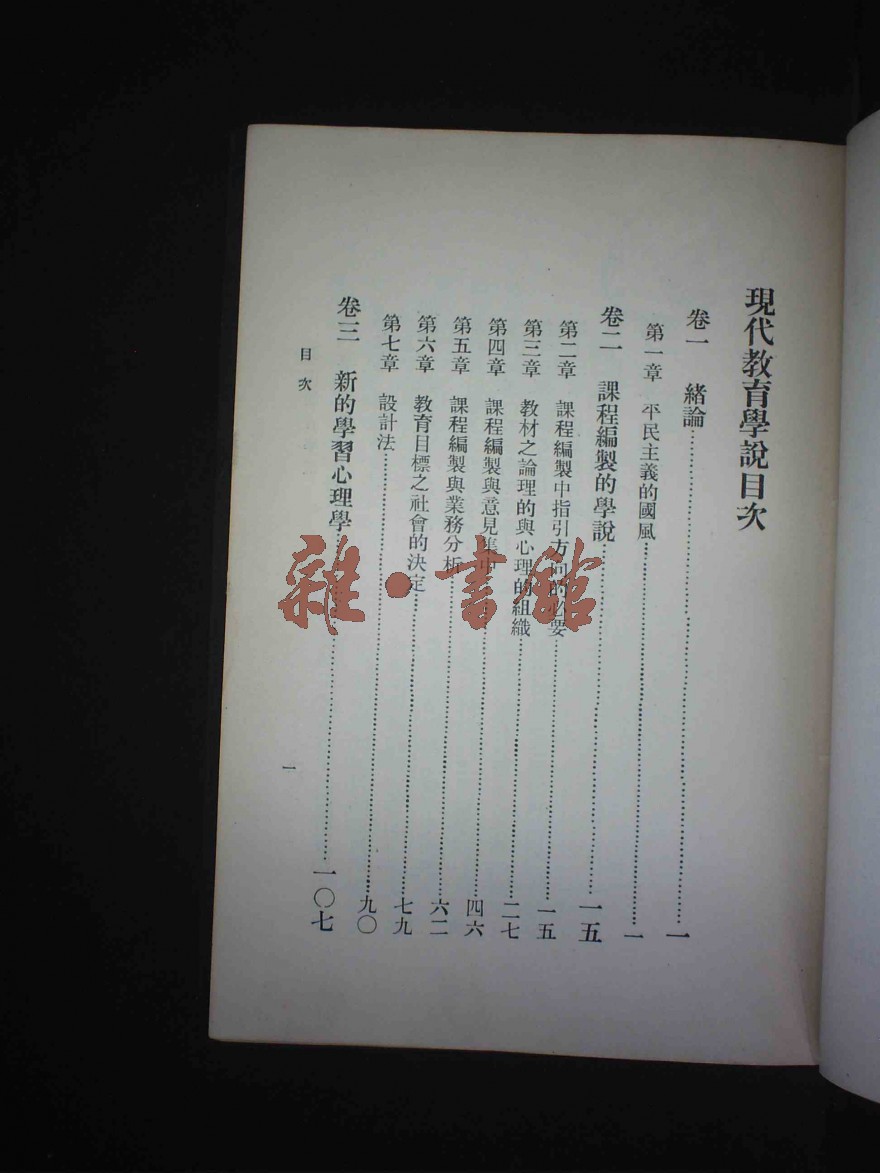 現代教育學說目次
卷一 緒論……一
第一章 平民主義的國風……一
卷二 課程編製的學說……一五
第二章 課程編製中指引方向的必要……一五
第三章 教材之論理的與心理的組織……二七
第四章 課程編製與意見集中……四六
第五章 課程編製與業務分析……六二
第六章 教育目標之社會的決定……七九
第七章 設計法……九〇
卷三 新的學習心理學……一〇七
目次
一
雜·書館